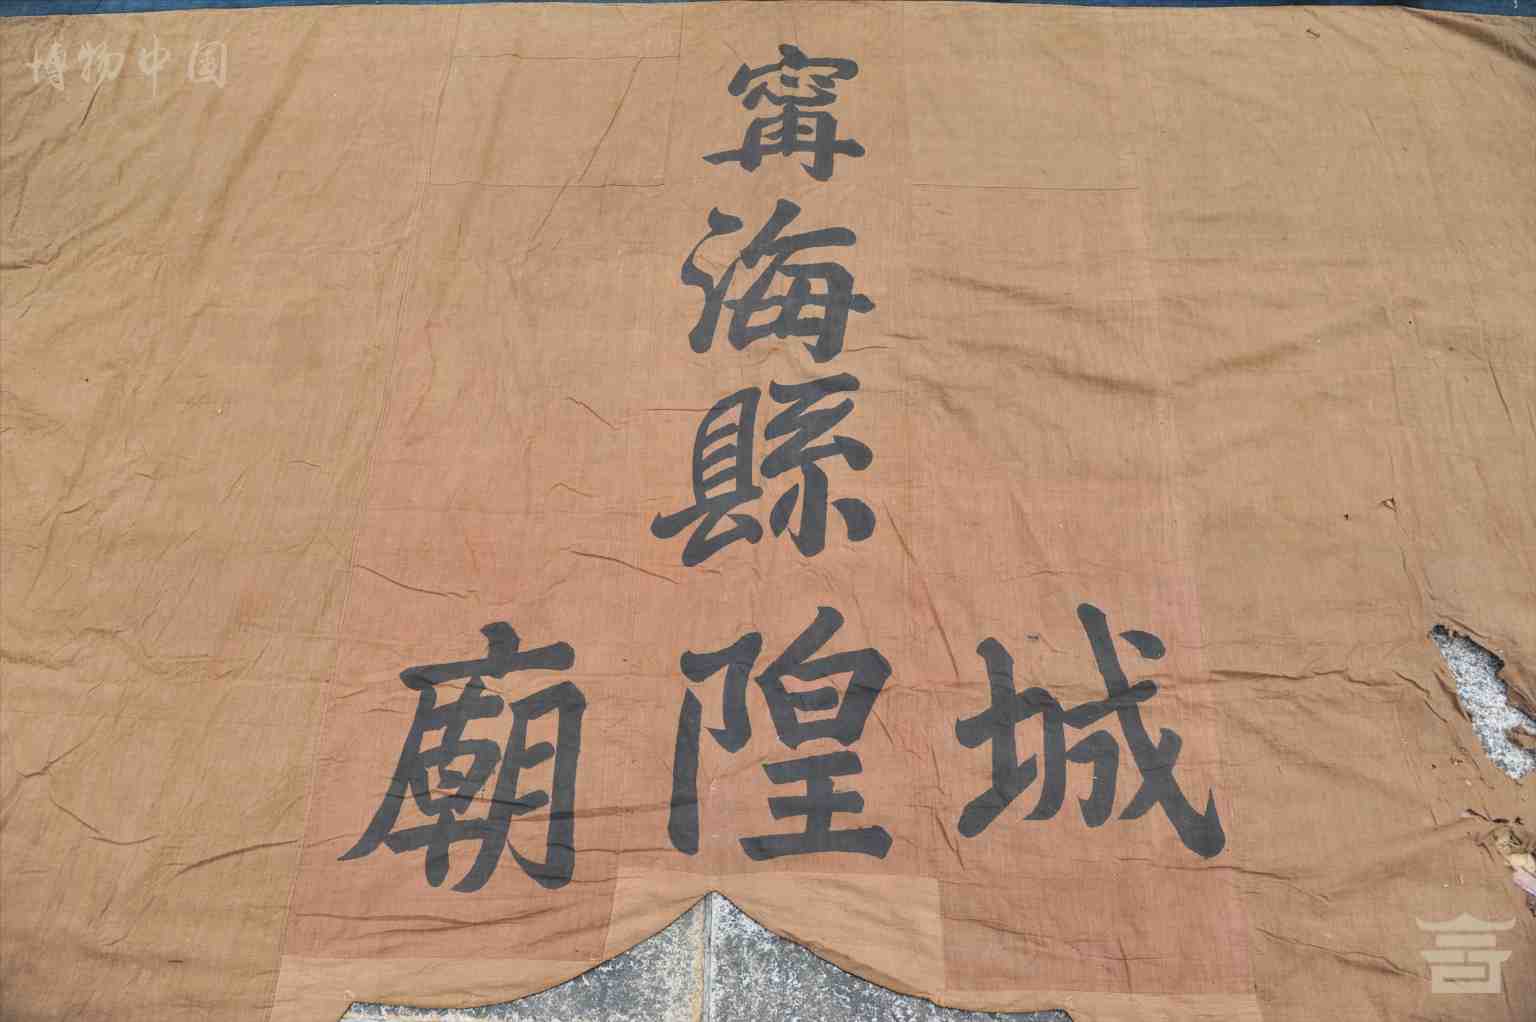 博物中国
寗海縣
城隍廟